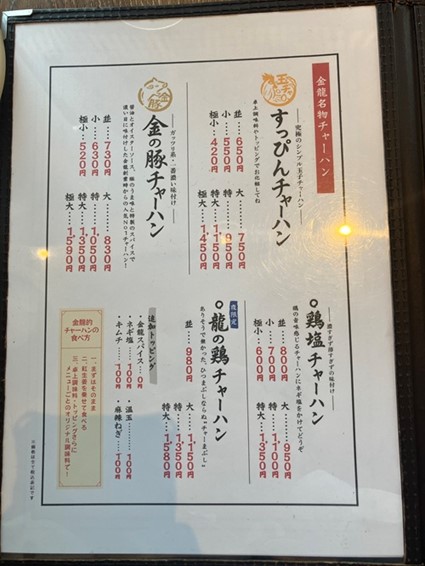 金龍名物チャーハン
玉子
すっぴんチャーハン
究極のシンプル玉子チャーハン
卓上調味料やトッピングでお化粧してね
並……650円
小……550円
極小……420円
大……750円
特大……1,150円
極大……1,450円
金の豚チャーハン
ガッツリ系・一番濃い味付け
並……730円
小……630円
極小……520円
大……830円
特大……1,050円
特大……1,350円
極大……1,590円
鶏塩チャーハン
濃すぎず薄すぎずの味付け
鶏の旨味感じるチャーハンにネギ塩をかけてどうぞ
並……800円
小……700円
極小……600円
大……950円
特大……1,100円
特大……1,350円
夜限定
龍の鶏チャーハン
ありそうで無かった、ひつまぶしならぬ"チャーまぶし"
並……980円
大……1,150円
特大……1,350円
極大……1,580円
追加トッピング
・金龍スパイス…0円
・ネギ塩……100円
・キムチ……100円
・温玉………100円
・麻辣ねぎ…100円
金龍的
チャーハンの
食べ方
一、まずはそのまま
二、紅生姜を乗せて食べる
三、卓上調味料・トッピングさらに
メニューごとのオリジナル調味料で！